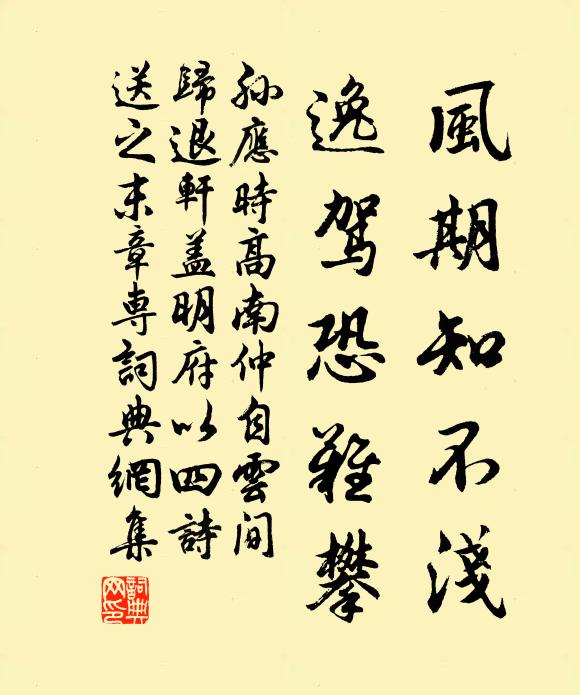 風期知不淺
逸駕恐難攀
孫應時高南仲自雲間
歸退軒蓋明府以四詩
送之末章専詞典網集
詞典
网印